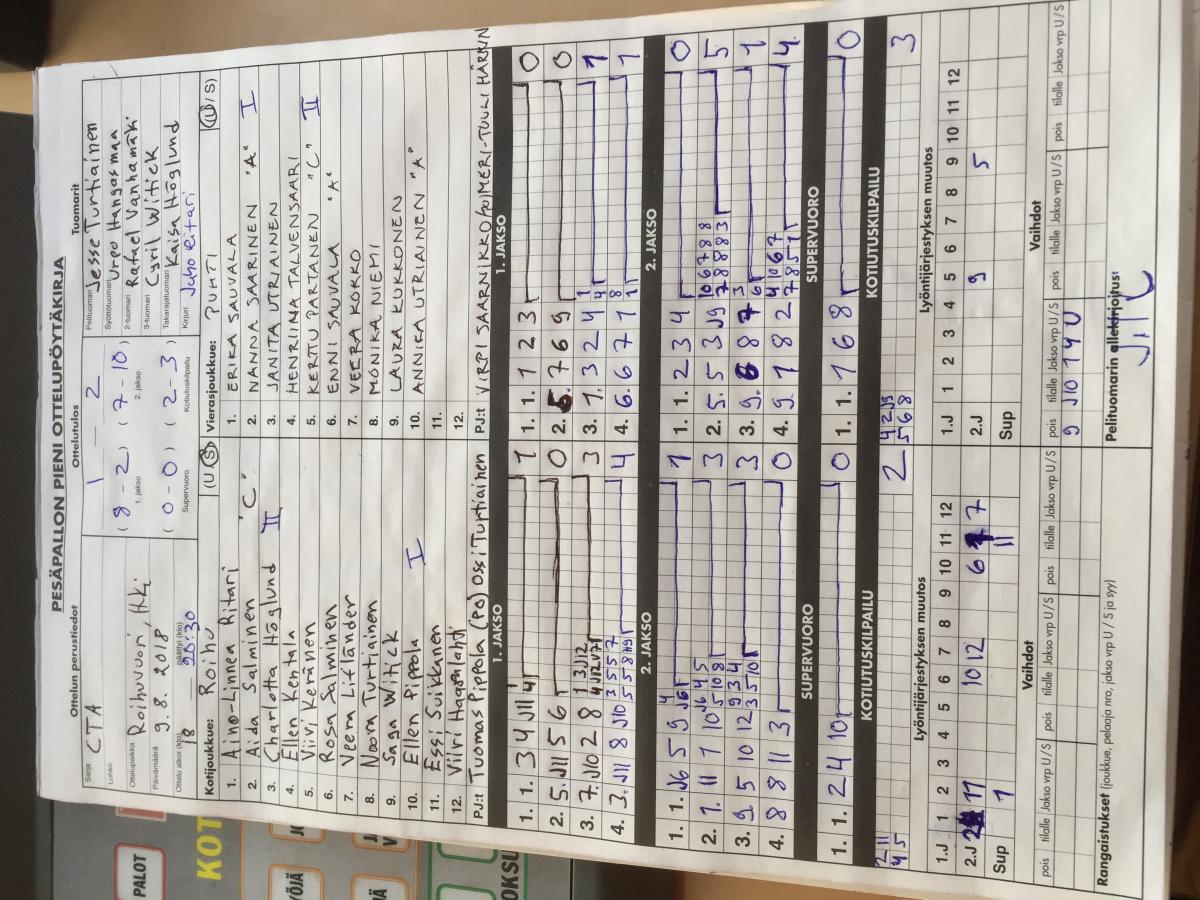 PESÄPALLON PIENI OTTELUPÖYTÄKIRJA
Ottelun perustiedot
Ottelutulos
Tuomarit
Sarja CTA
Lohko
Ottelupaikka Roihuvuori, Hki
Päivämäärä 9.8. 2018
Ottelu alkoi (klo) 18
päättyi (klo) 20:30
1 — 2
( 8 - 2 ) ( 7 - 10 )
1. jakso 2. jakso
( 0 - 0 ) ( 2 - 3 )
Supervuoro Kotiutuskilpailu
Pelituomari Jesse Turtiainen
Syöttötuomari Urpo Hangasmaa
2-tuomari Rafael Vanhamäki
3-tuomari Cyril Witick
Takarajatuomari Kaisa Höglund
Kirjuri Juho Ritari
Kotijoukkue: Roihu (U/S)
1. Aino-Linnea Ritari
2. Aida Salminen "C"
3. Charlotta Höglund II
4. Ellen Kentala
5. Viivi Keränen
6. Rosa Salminen
7. Veera Lifländer
8. Noora Turtiainen
9. Saga Witick
10. Ellen Pippola I
11. Essi Suikkanen
12. Viivi Haapalahti
PJ:t Tuomas Pippola (PO) Ossi Turtiainen
Vierasjoukkue: PUHTI (U/S)
1. ERIKA SAUVALA
2. NANNA SAARINEN "A" I
3. JANITA UTRIAINEN
4. HENRIINA TALVENSAARI
5. KERTTU PARTANEN "C" II
6. ENNI SAUVALA "A"
7. VEERA KOKKO
8. MONIKA NIEMI
9. LAURA KUKKONEN
10. ANNIKA UTRIAINEN "A"
11.
12.
PJ:t VIRPI SAARNIKKO
1. JAKSO
1. JAKSO
1. 1. 3 4 J11 4 1
2. 5. J11 5 6 0
3. 7. J10 2 8 3
4. 3. J11 8 J10 4
1. 1. 1 2 3 0
2. 5. 7 6 9 0
3. 1. 3 2 4 1
4. 6. 6 7 1 1
2. JAKSO
2. JAKSO
1. 1. J6 5 9 1
2. 1. 11 1 10 3
3. 9. 5 10 12 3
4. 8 8 11 3 0
1. 1. 2 3 4 0
2. 5. 5 3 J9 5
3. 9. 6 8 7 1
4. 9. 1 8 2 4
SUPERVUORO
SUPERVUORO
1. 1. 2 4 10 0
1. 1. 1 6 8 0
KOTIUTUSKILPAILU
KOTIUTUSKILPAILU
2 11
4 5
2
4 2 J9
5 6 8
3
Lyöntijärjestyksen muutos
Lyöntijärjestyksen muutos
1.J 1 2 3 4 5 6 7 8 9 10 11 12
2.J 11 10 12 6 7
Sup 1 11
1.J 1 2 3 4 5 6 7 8 9 10 11 12
2.J 9 5
Sup
Vaihdot
Vaihdot
pois tilalle Jakso vrp U/S pois tilalle Jakso vrp U/S pois tilalle Jakso vrp U/S
pois tilalle Jakso vrp U/S pois tilalle Jakso vrp U/S pois tilalle Jakso vrp U/S
9 J10 1 4 U
Rangaistukset (joukkue, pelaaja nro, jakso vrp U / S ja syy)
Pelituomarin allekirjoitus:
PALOT
KOT
OKSU